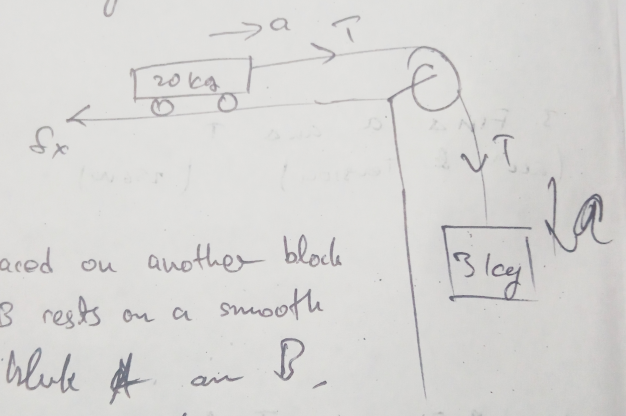 a
T
20 kg
fx
T
a
3 kg
aced on another block
B rests on a smooth
block A an B.